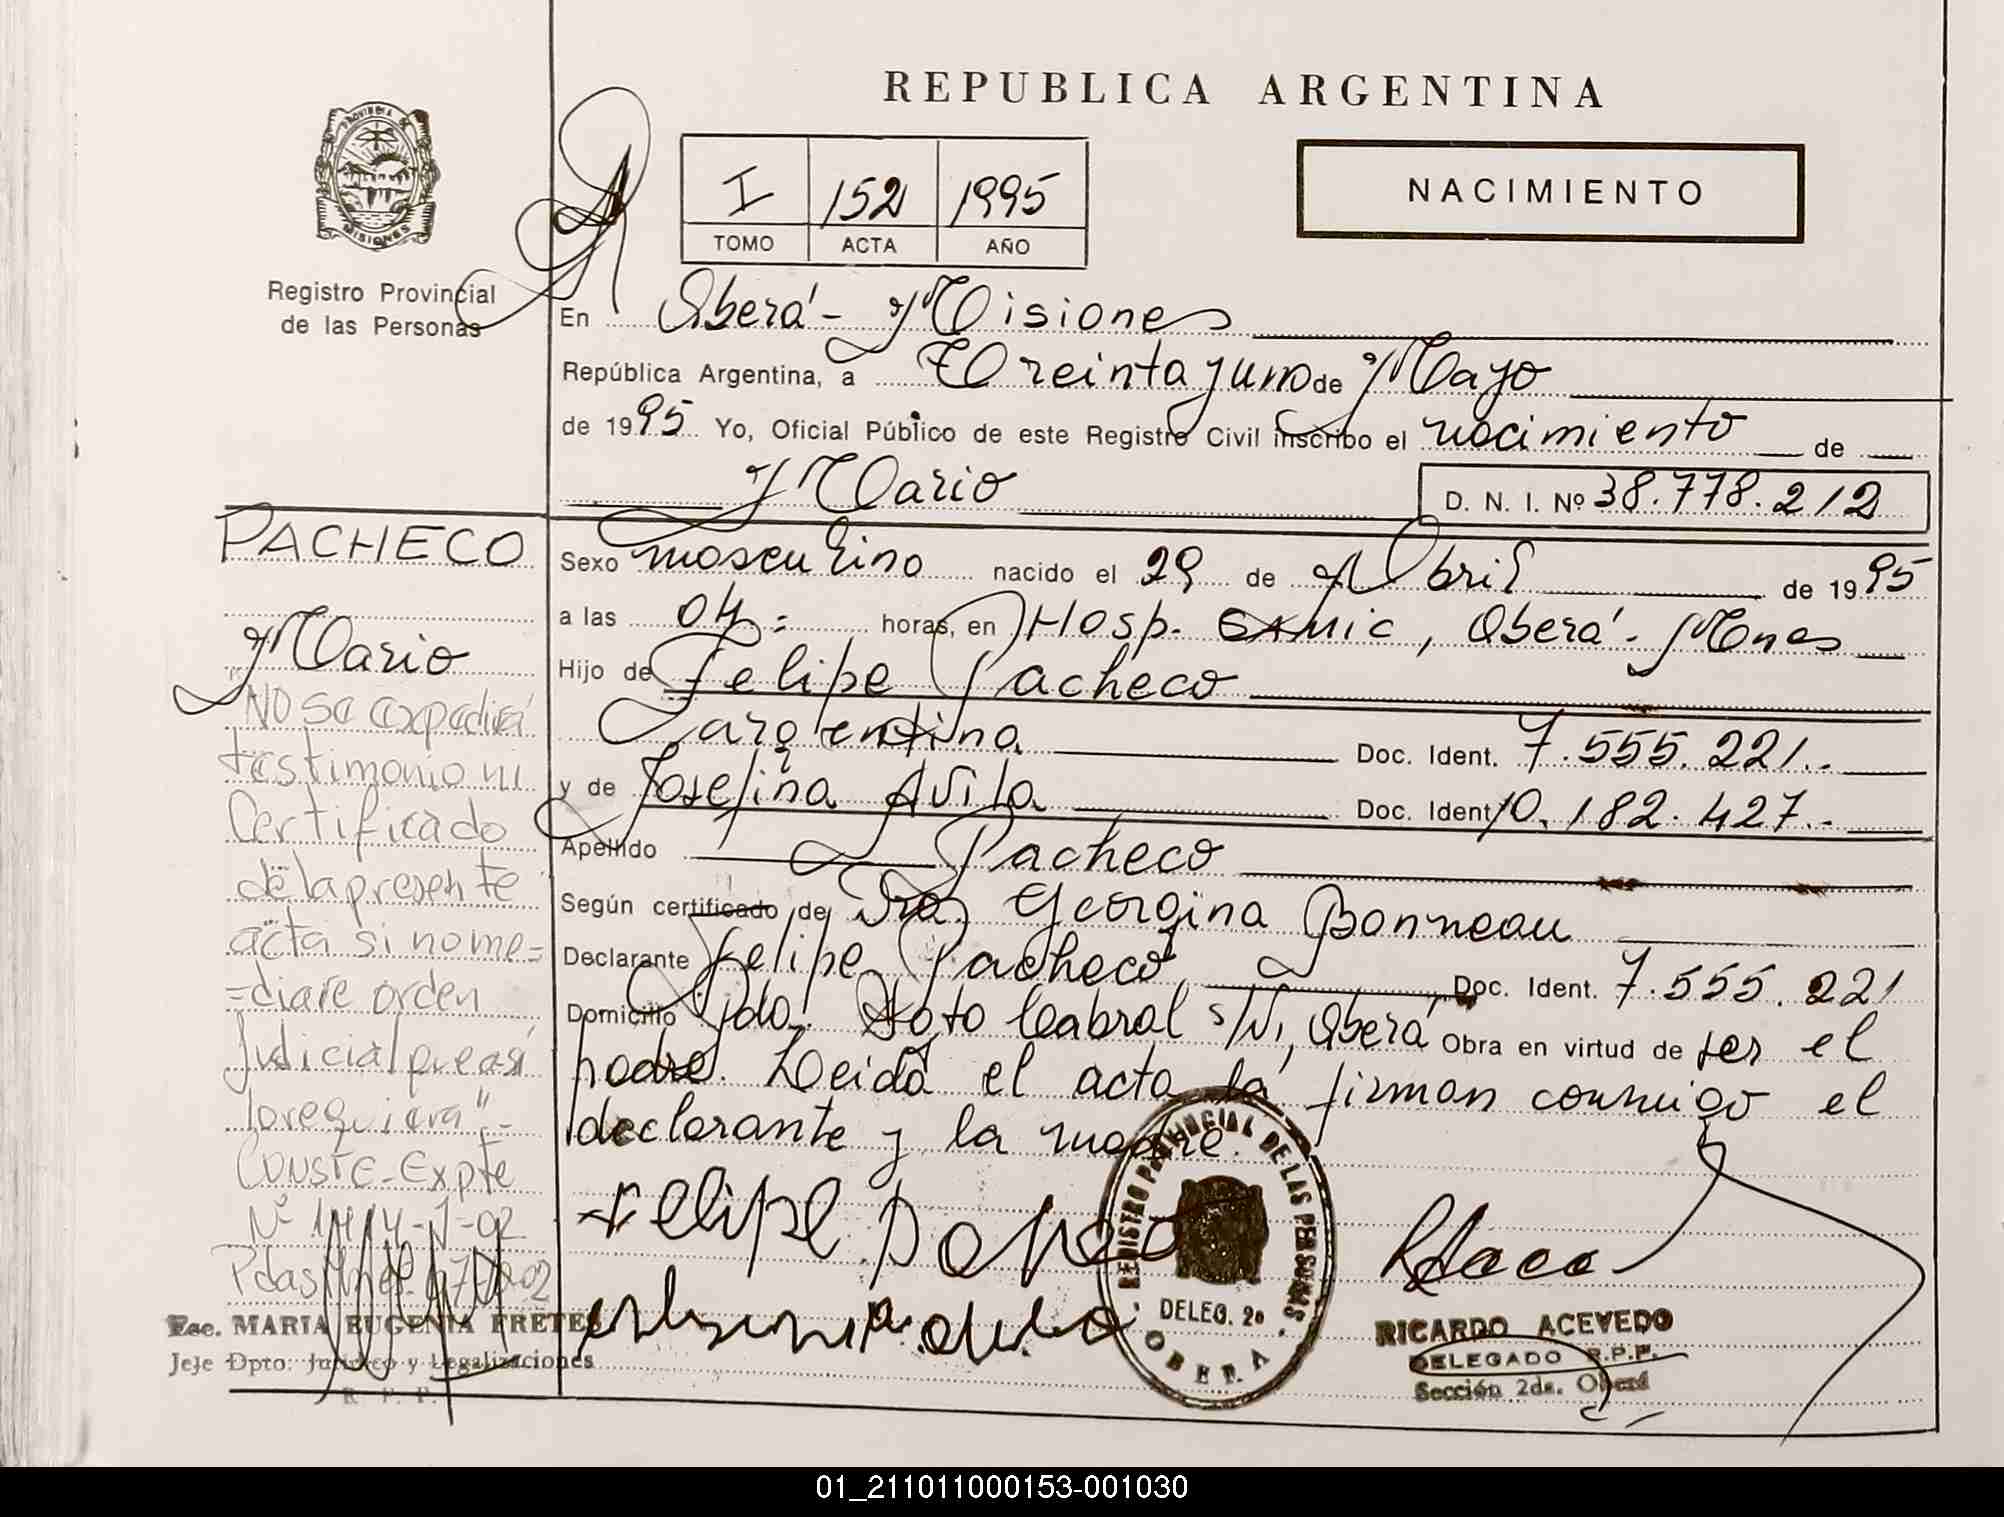 REPUBLICA ARGENTINA
PROVINCIA DE
MISIONES
Registro Provincial
de las Personas
I 152 1995
TOMO ACTA AÑO
NACIMIENTO
En Oberá - Misiones
República Argentina, a Treinta y uno de Mayo
de 1995 Yo, Oficial Público de este Registro Civil inscribo el nacimiento de
Mario D. N. I. Nº 38.778.212
PACHECO
Mario
Sexo masculino nacido el 29 de Abril de 1995
a las 04 = horas, en Hosp. SAMIC, Oberá - Mnes
Hijo de Felipe Pacheco
argentina Doc. Ident. 7.555.221.-
y de Josefina Avila Doc. Ident. 10.182.427.-
Apellido Pacheco
Según certificado de Dra. Georgina Bonneau
Declarante Felipe Pacheco Doc. Ident. 7.555.221
Domicilio Sgto Cabral s/N, Oberá Obra en virtud de ser el
padre. Leida el acta la firman conmigo el
declarante y la madre.
NO se expedirá
testimonio ni
Certificado
de la presente
acta si no me=
=diare orden
Judicial que así
lo requiera".-
CONSTE-Expte
Felipe
REGISTRO PROVINCIAL DE LAS PERSONAS
DELEG. 2a
OBERA
RICARDO ACEVEDO
DELEGADO R.P.P.
Sección 2da. Oberá
Esc. MARIA EUGENIA FRETES
Jefe Dpto. Jurídico y Legalizaciones
R. P. P.
01_211011000153-001030